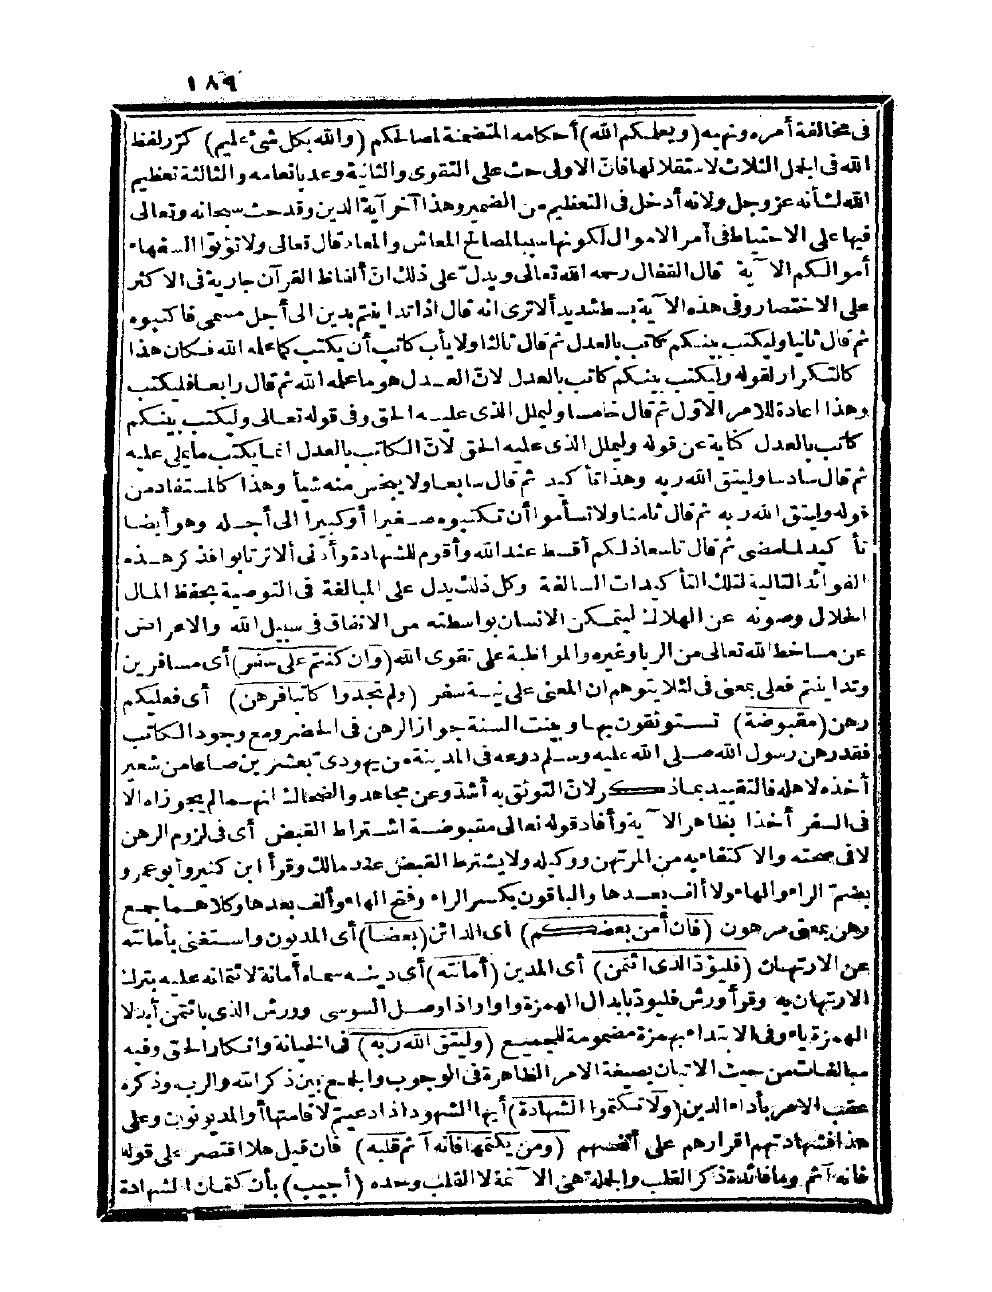 ١٨٩
فى مخالفة أمره ونهيه (ويعلمكم الله) أحكامه المتضمنة لمصالحكم (والله بكل شئ عليم) كرر لفظ
الله فى الجمل الثلاث لاستقلالها فانّ الاولى حث على التقوى والثانية وعد بانعامه والثالثة تعظيم
الله لشأنه عز وجل ولانه أدخل فى التعظيم من الضمير وهذا آخر آية الدين وقد حث سبحانه وتعالى
فيها على الاحتياط فى أمر الاموال لكونها سببا لمصالح المعاش والمعاد قال تعالى ولا تؤتوا السفهاء
أموالكم الآية قال القفال رحمه الله تعالى ويدل على ذلك انّ ألفاظ القرآن جارية فى الاكثر
على الاختصار وفى هذه الآية بسط شديد ألا ترى انه قال اذا تداينتم بدين الى أجل مسمى فاكتبوه
ثم قال ثانيا وليكتب بينكم كاتب بالعدل ثم قال ثالثا ولا يأب كاتب أن يكتب كما علمه الله فكان هذا
كالتكرار لقوله وليكتب بينكم كاتب بالعدل لانّ العدل هو ما علمه الله ثم قال رابعا فليكتب
وهذا اعادة للامر الاوّل ثم قال خامسا وليملل الذى عليه الحق وفى قوله تعالى وليكتب بينكم
كاتب بالعدل كناية عن قوله وليملل الذى عليه الحق لانّ الكاتب بالعدل انما يكتب ما يملى عليه
ثم قال سادسا وليتق الله ربه وهذا تأكيد ثم قال سابعا ولا يبخس منه شيأ وهذا كالمستفاد من
قوله وليتق الله ربه ثم قال ثامنا ولا تسأموا أن تكتبوه صغيرا أو كبيرا الى أجله وهو أيضا
تأكيد لما مضى ثم قال تاسعا ذلكم أقسط عند الله وأقوم للشهادة وأدنى ألا ترتابوا فذكر هذه
الفوائد التالية لتلك التأكيدات السالفة وكل ذلك يدل على المبالغة فى التوصية بحفظ المال
الحلال وصونه عن الهلاك ليتمكن الانسان بواسطته من الانفاق فى سبيل الله والاعراض
عن مساخط الله تعالى من الربا وغيره والمواظبة على تقوى الله (وان كنتم على سفر) أى مسافرين
وتداينتم فعلى بمعنى فى لئلا يتوهم ان المعنى على نية سفر (ولم تجدوا كاتبا فرهن) أى فعليكم
رهن (مقبوضة) تستوثقون بها وبينت السنة جواز الرهن فى الحضر ومع وجود الكاتب
فقد رهن رسول الله صلى الله عليه وسلم درعه فى المدينة من يهودى بعشرين صاعا من شعير
أخذه لاهله فالتقييد بما ذكر لانّ التوثق به أشدّ وعن مجاهد والضحاك انهما لم يجوزاه الا
فى السفر أخذا بظاهر الآية وأفاد قوله تعالى مقبوضة اشتراط القبض أى فى لزوم الرهن
لا فى صحته والاكتفاء به من المرتهن ووكيله ولا يشترط القبض عند مالك وقرأ ابن كثير وأبو عمرو
بضم الراء والهاء ولا ألف بعدها والباقون بكسر الراء وفتح الهاء وألف بعدها وكلاهما جمع
رهن بمعنى مرهون (فان أمن بعضكم) أى الدائن (بعضا) أى المديون واستغنى بأمانته
عن الارتهان (فليؤد الذى ائتمن) أى المدين (أمانته) أى دينه سماه أمانة لائتمانه عليه بترك
الارتهان به وقرأ ورش فليود بابدال الهمزة واوا واذا وصل السوسى وورش الذى بائتمن أبدلا
الهمزة ياء وفى الابتداء بهمزة مضمومة للجميع (وليتق الله ربه) فى الخيانة وانكار الحق وفيه
مبالغات من حيث الاتيان بصيغة الامر الظاهرة فى الوجوب والجمع بين ذكر الله والرب وذكره
عقب الامر بأداء الدين (ولا تكتموا الشهادة) أيها الشهود اذا دعيتم لاقامتها أو المديونون وعلى
هذا فشهادتهم اقرارهم على أنفسهم (ومن يكتمها فانه آثم قلبه) فان قيل هلا اقتصر على قوله
فانه آثم وما فائدة ذكر القلب والجملة هى الآثمة لا القلب وحده (أجيب) بأن كتمان الشهادة